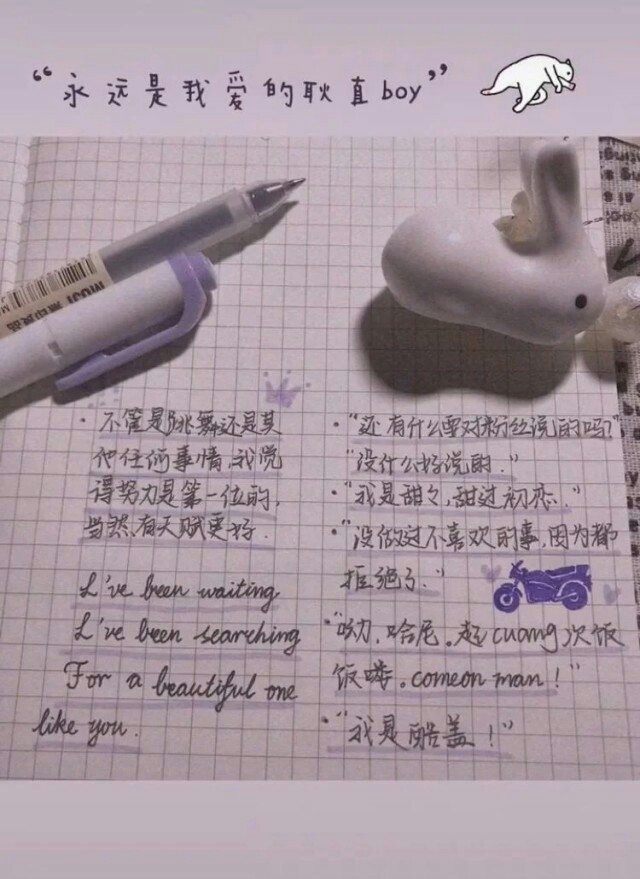 “永远是我爱的耿直boy”
MUJI 無印良品
· 不管是跳舞还是其
他任何事情,我觉
得努力是第一位的,
当然,有天赋更好.
I've been waiting
I've been searching
For a beautiful one
like you.
·“还有什么要对粉丝说的吗?”
“没什么好说的.”
·“我是甜々,甜过初恋.”
·“没做过不喜欢的事,因为都
拒绝了.”
·“呦,哈尼。起cuang次饭
饭喽。comeon man!”
·“我是酷盖!”